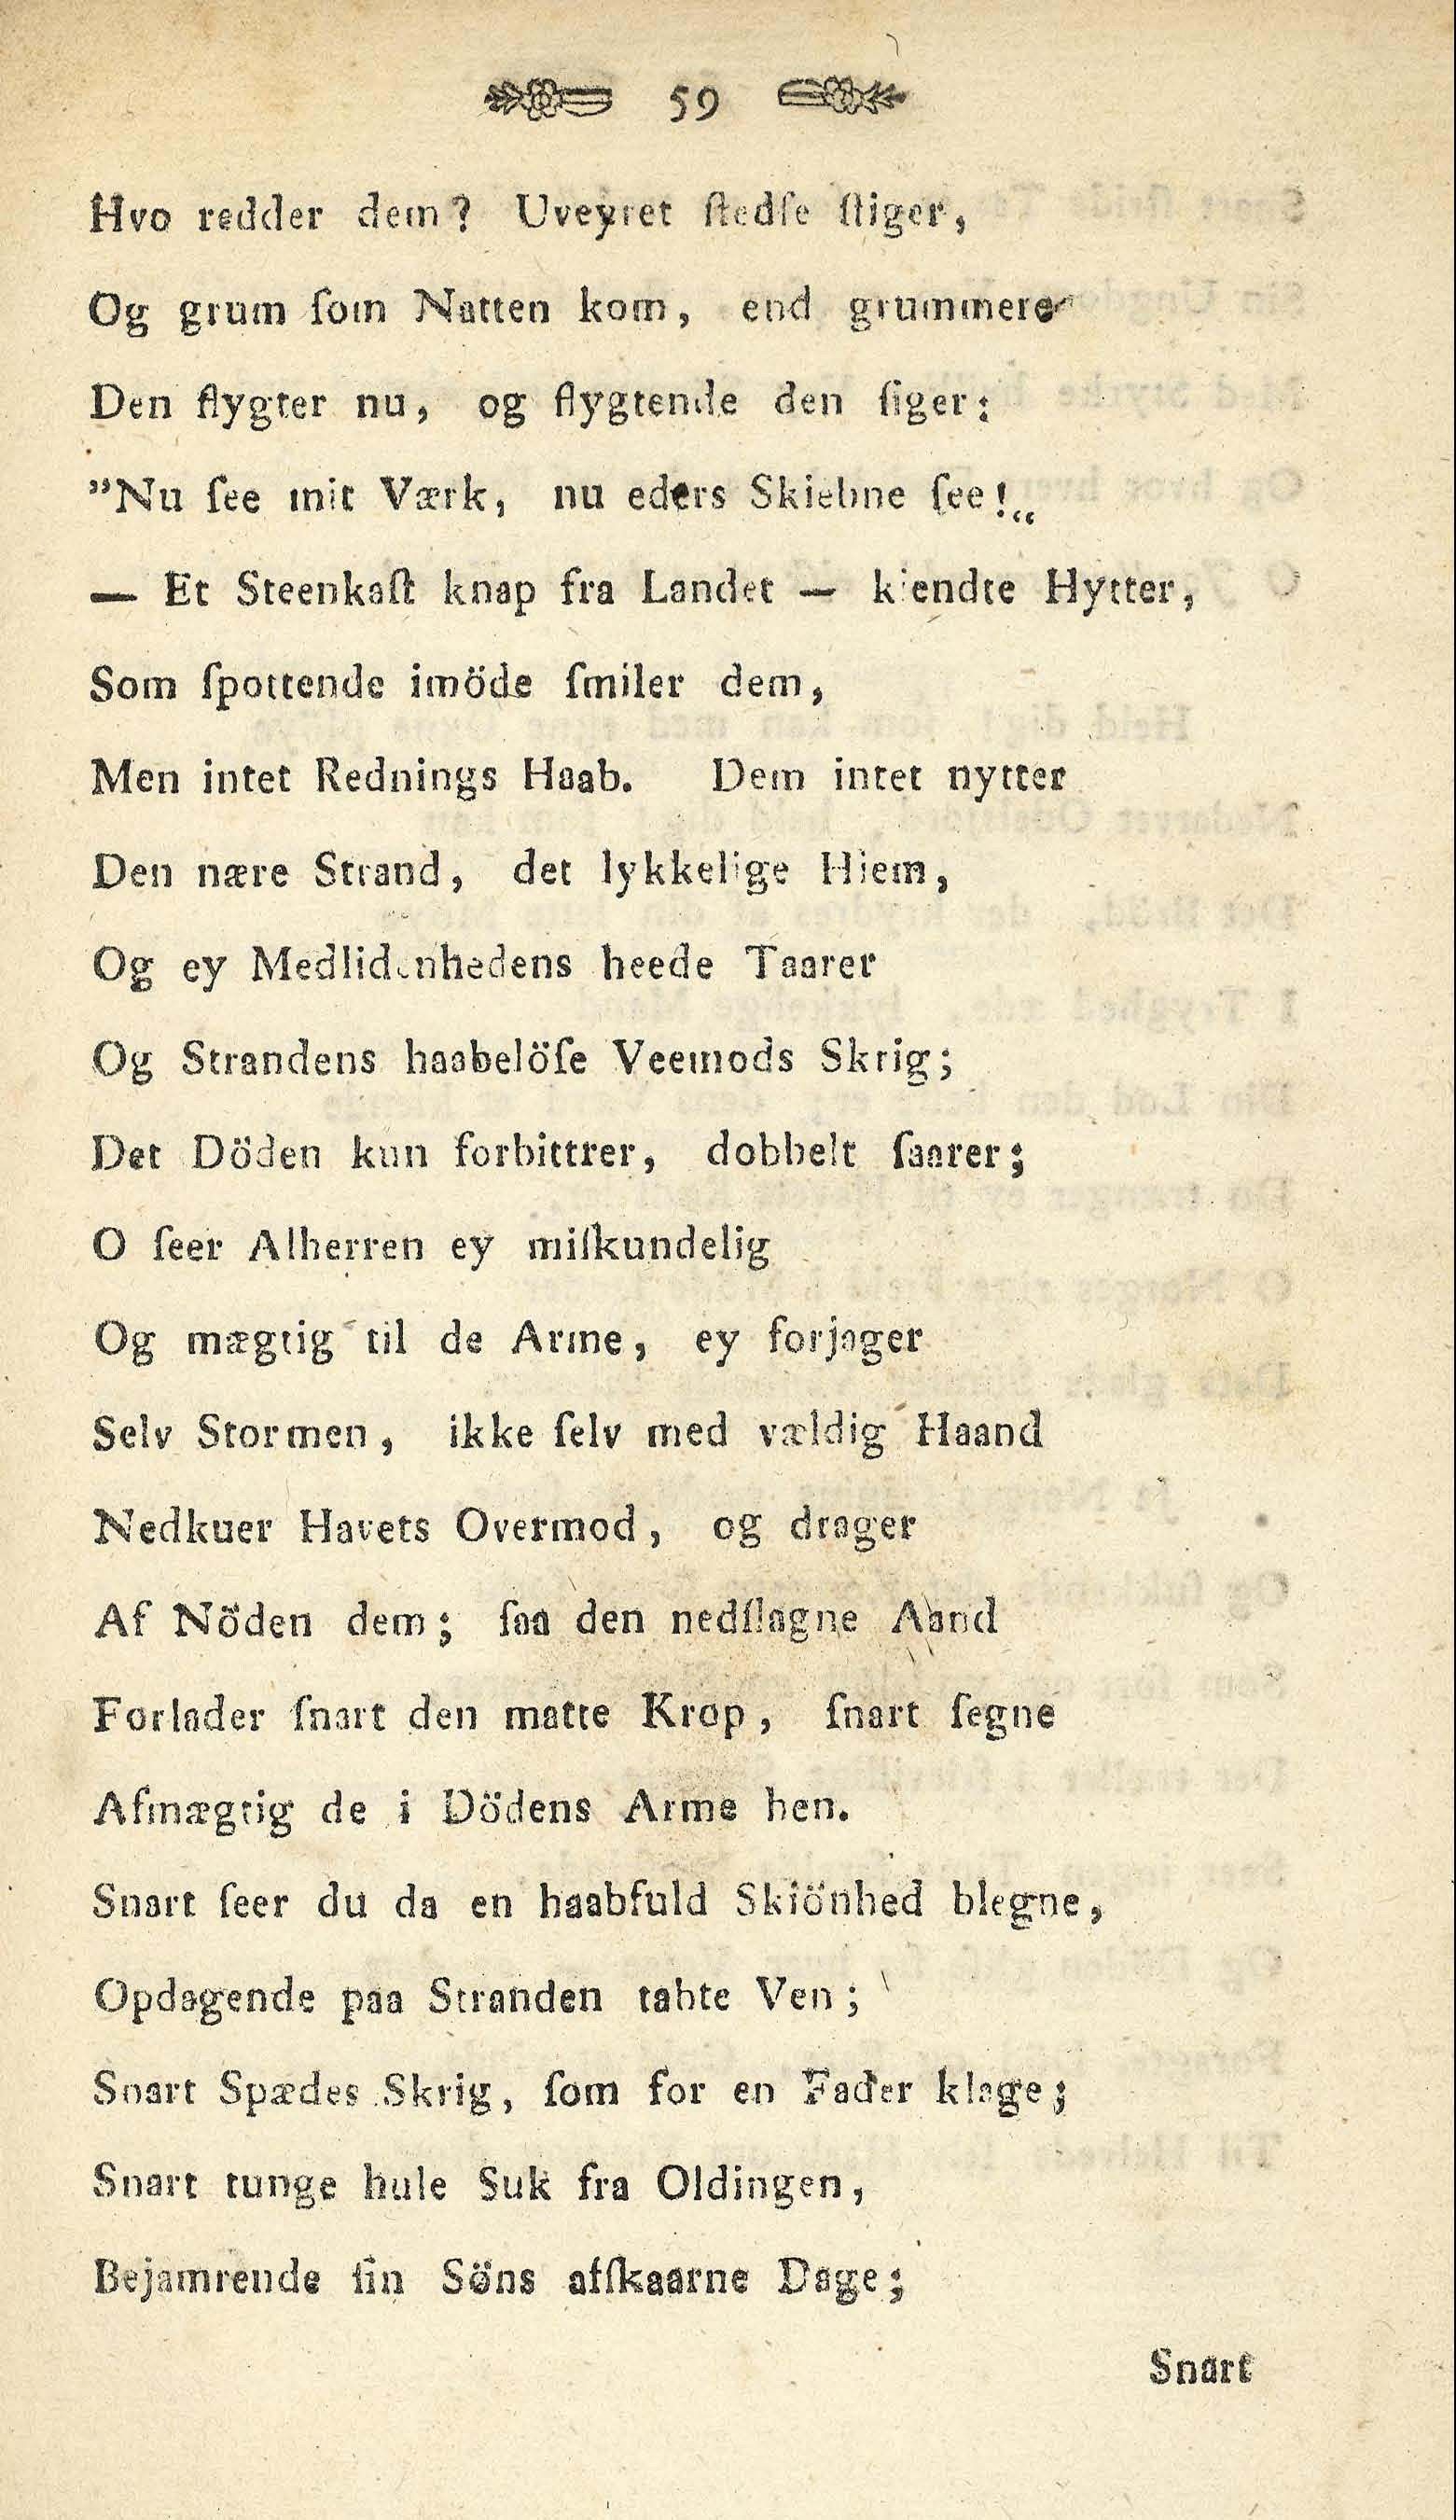 59
Hvo redder dem? Uveyret ſtedſe ſtiger,
Og grum ſom Natten kom, end grummere
Den flygter nu, og flygtende den ſiger:
"Nu ſee mit Værk, nu eders Skiebne ſee!„
— Et Steenkaſt knap fra Landet — kiendte Hytter,
Som ſpottende imöde ſmiler dem,
Men intet Rednings Haab. Dem intet nytter
Den nære Strand, det lykkelige Hiem,
Og ey Medlidenhedens heede Taarer
Og Strandens haabelöſe Veemods Skrig;
Det Döden kun forbittrer, dobbelt ſaarer;
O ſeer Alherren ey miſkundelig
Og mægtig til de Arme, ey forjager
Selv Stormen, ikke ſelv med vældig Haand
Nedkuer Havets Overmod, og drager
Af Nöden dem; ſaa den nedſlagne Aand
Forlader ſnart den matte Krop, ſnart ſegne
Afmægtig de i Dödens Arme hen.
Snart ſeer du da en haabfuld Skiönhed blegne,
Opdagende paa Stranden tabte Ven;
Snart Spædes Skrig, ſom for en Fader klage;
Snart tunge hule Suk fra Oldingen,
Bejamrende ſin Söns afſkaarne Dage;
Snart